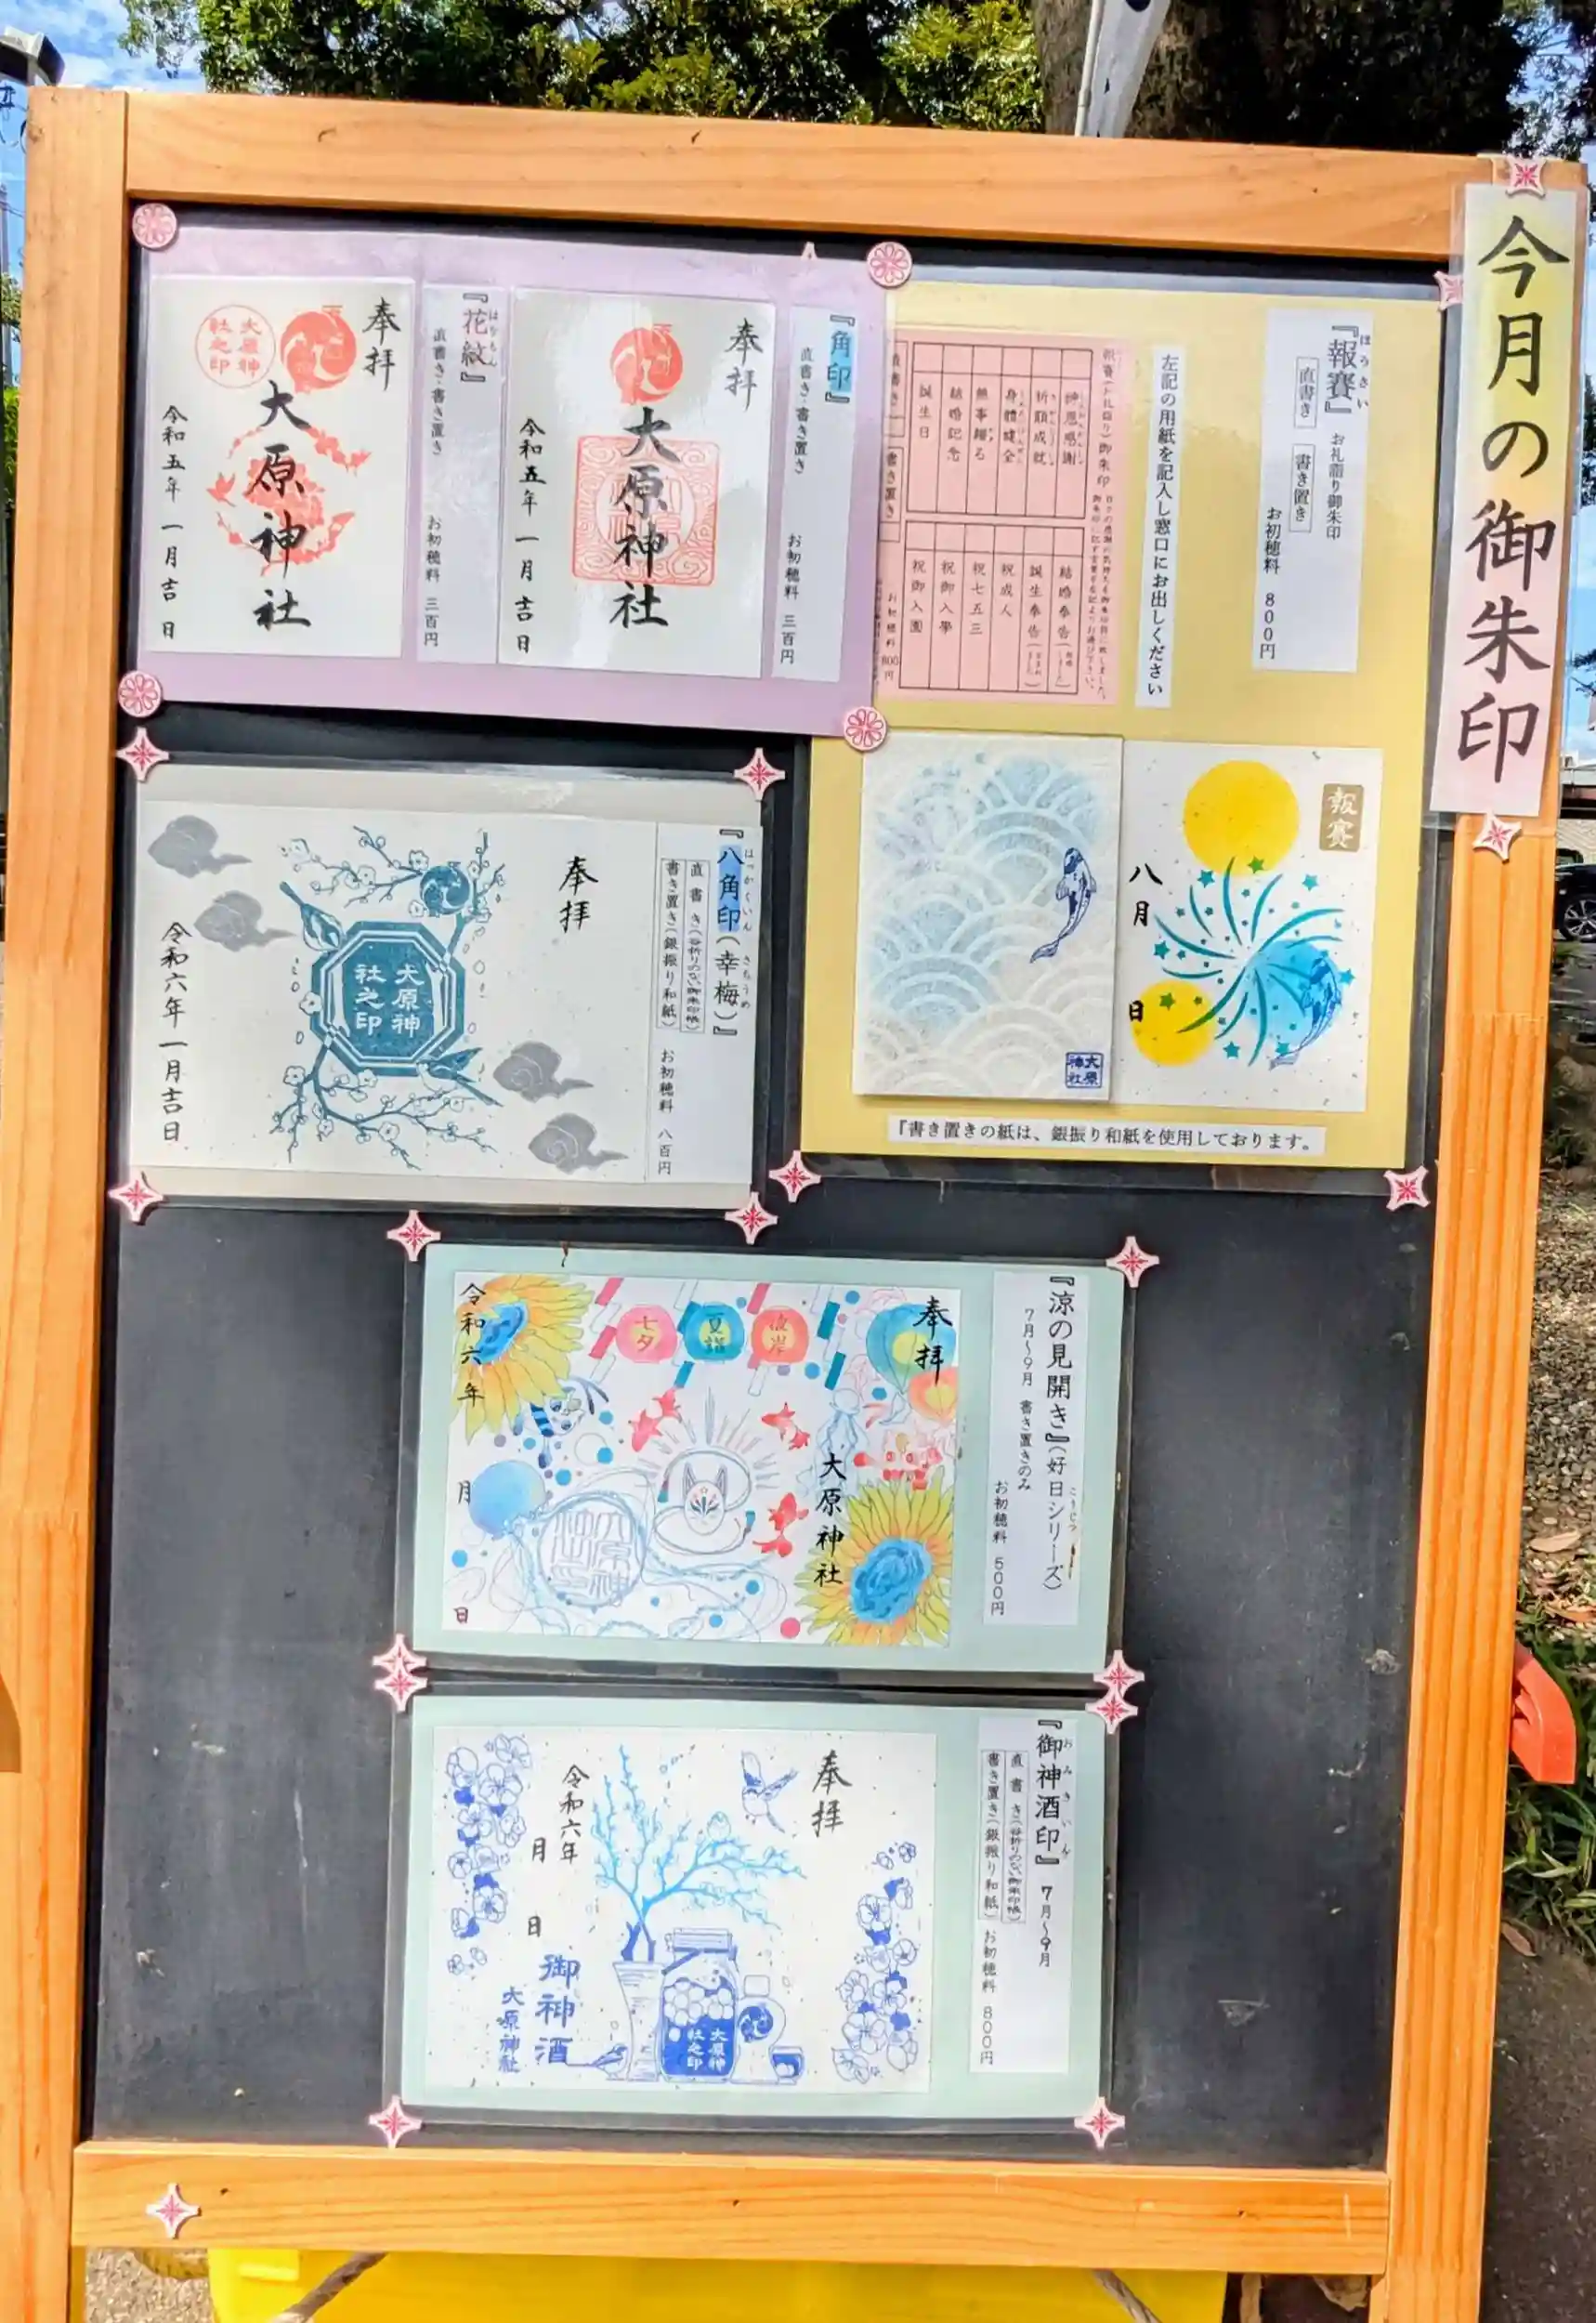 今月の御朱印
『報賽』
ほうさい
お礼詣り御朱印
直書き
書き置き
お初穂料 800円
左記の用紙を記入し窓口にお出しください
神恩感謝
祈願成就
身體健全
無事歸る
結婚記念
誕生日
結婚奉告
誕生奉告
祝成人
祝七五三
祝御入學
祝御入園
報賽
八月
日
大原神社
『書き置きの紙は、銀振り和紙を使用しております。
『角印』
直書き・書き置き
お初穂料 三百円
奉拝
大原神社
令和五年一月吉日
『花紋』
はなもん
直書き・書き置き
お初穂料 三百円
奉拝
大原神社
大原神社之印
令和五年一月吉日
『八角印(幸梅)』
はっかくいん さちうめ
直書き(谷折りのない御朱印帳)
書き置き(銀振り和紙)
お初穂料 八百円
奉拝
大原神社之印
令和六年一月吉日
『涼の見開き』(好日シリーズ)
こうじつ
7月~9月 書き置きのみ
お初穂料 500円
奉拝
七夕
夏詣
大原神社
令和六年
月
日
『御神酒印』 7月~9月
おみきいん
直書き(谷折りのない御朱印帳)
書き置き(銀振り和紙) お初穂料 800円
奉拝
令和六年
月
日
御神酒
大原神社
大原神社之印